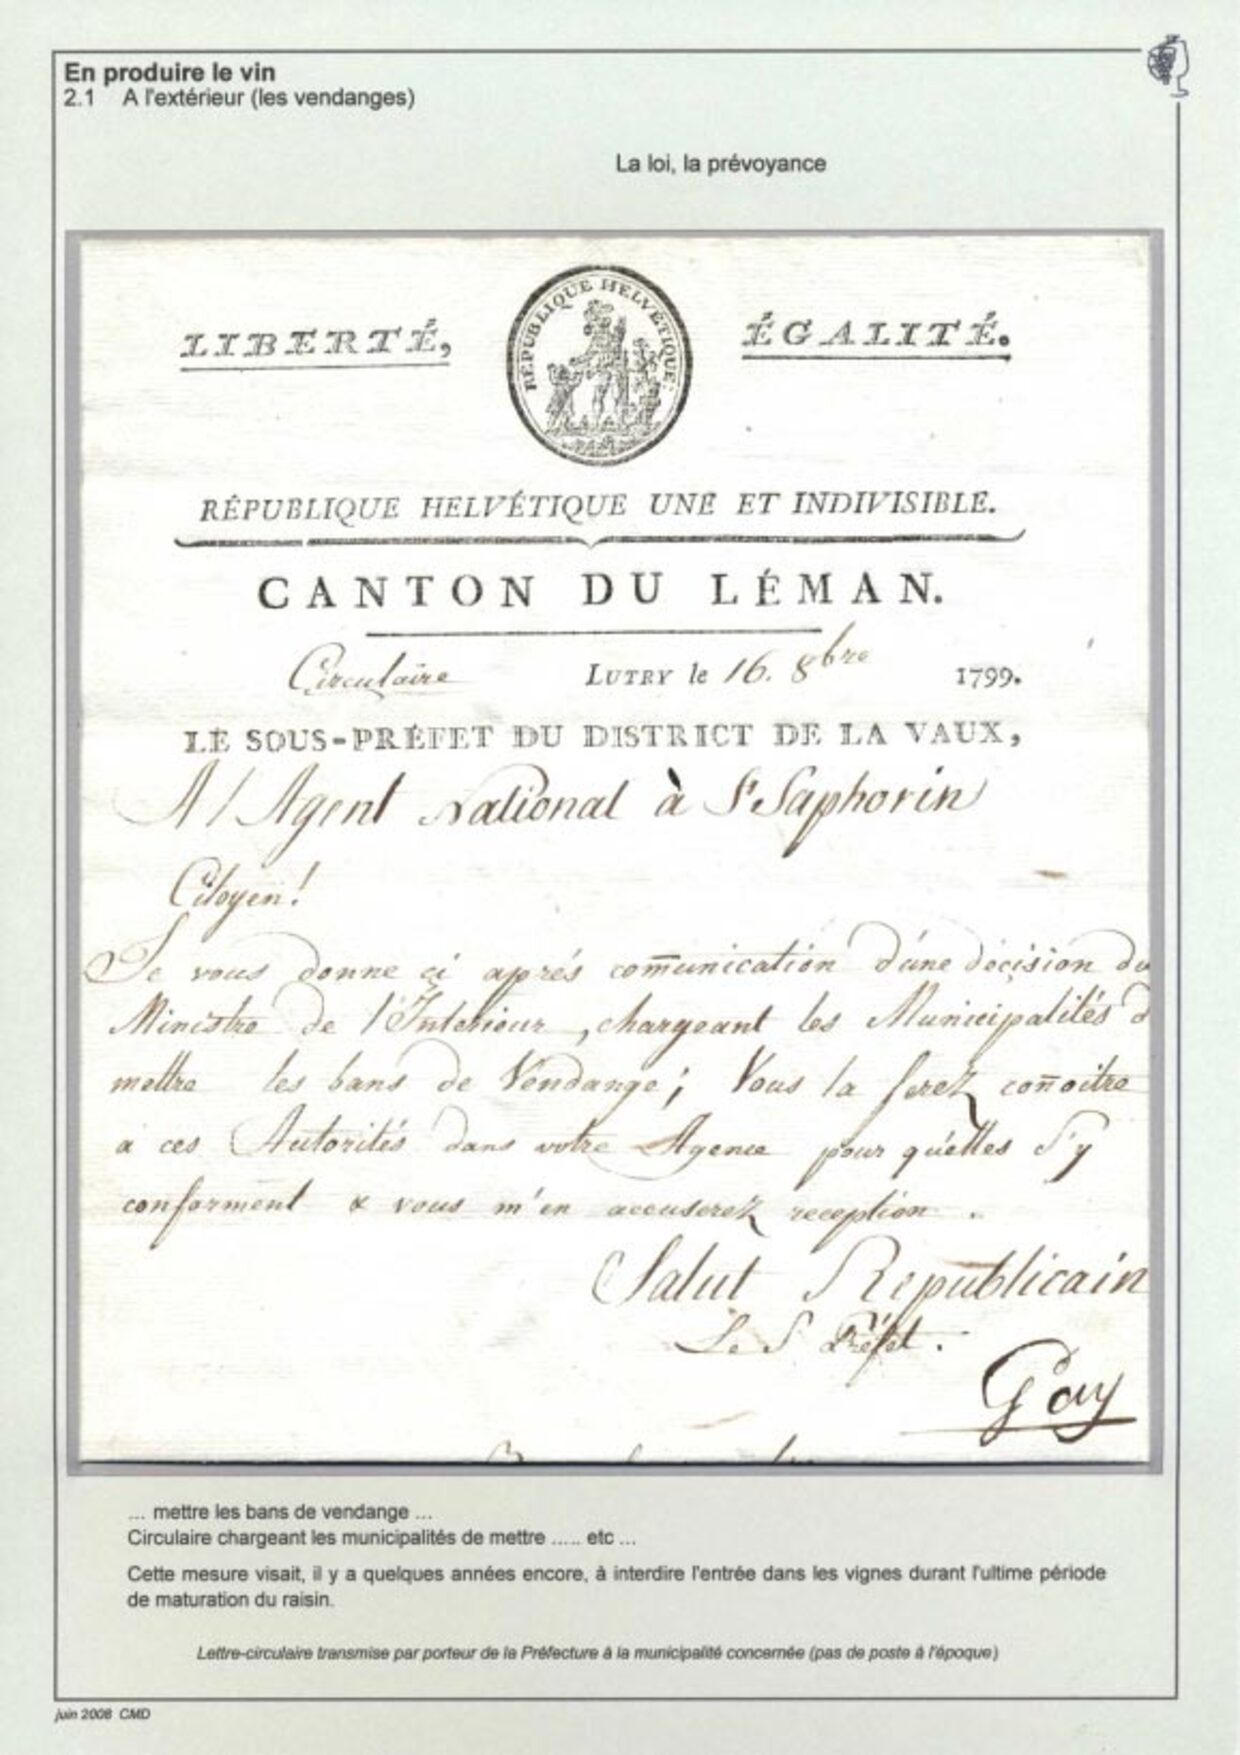 En produire le vin
2.1 A l'extérieur (les vendanges)
La loi, la prévoyance
LIBERTÉ,
RÉPUBLIQUE HELVÉTIQUE
ÉGALITÉ.
RÉPUBLIQUE HELVÉTIQUE UNE ET INDIVISIBLE.
CANTON DU LÉMAN.
Circulaire LUTRY le 16. 8bre 1799.
LE SOUS-PRÉFET DU DISTRICT DE LA VAUX,
A l'Agent National à St Saphorin
Citoyen!
Je vous donne ci après com̄unication d'une décision du
Ministre de l'Interieur, chargeant les Municipalités d
mettre les bans de Vendange; Vous la ferez con̄oitre
a ces Autorités dans votre Agence pour qu'elles s'y
conforment & vous m'en accuserez reception.
Salut Republicain
Le S Préfet.
Gay
... mettre les bans de vendange ...
Circulaire chargeant les municipalités de mettre ..... etc ...
Cette mesure visait, il y a quelques années encore, à interdire l'entrée dans les vignes durant l'ultime période
de maturation du raisin.
Lettre-circulaire transmise par porteur de la Préfecture à la municipalité concernée (pas de poste à l'époque)
juin 2008 CMD